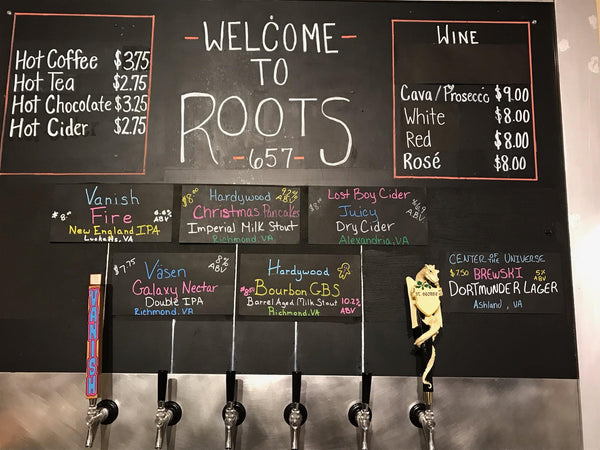 Hot Coffee $3.75
Hot Tea $2.75
Hot Chocolate $3.25
Hot Cider $2.75
-WELCOME-
TO
ROOTS
-657-
WINE
Cava/Prosecco $9.00
White $8.00
Red $8.00
Rosé $8.00
Vanish
$8.00 Fire 6.6% ABV
New England IPA
Lucketts, VA
Hardywood 9.2% ABV
$8.00 Christmas Pancakes
Imperial Milk Stout
Richmond, VA
Lost Boy Cider
Juicy 6.9 ABV
Dry Cider
Alexandria, VA
$7.75 Väsen 8% ABV
Galaxy Nectar
Double IPA
Richmond, VA
Hardywood
Bourbon GBS
Barrel Aged Milk Stout 10.2% ABV
Richmond, VA
CENTER OF THE UNIVERSE
$7.50 BREWSKI 5% ABV
DORTMUNDER LAGER
Ashland, VA
VANISH
ST. GEORGE